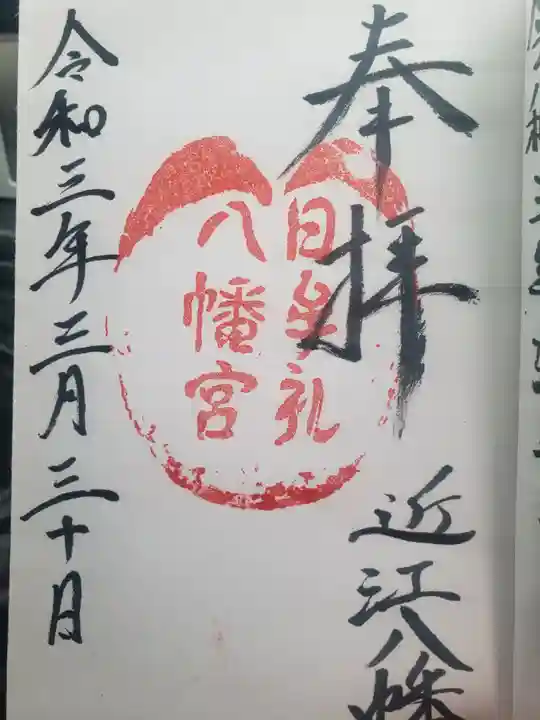 奉拝
近江八幡
日牟礼
八幡宮
令和三年三月三十日